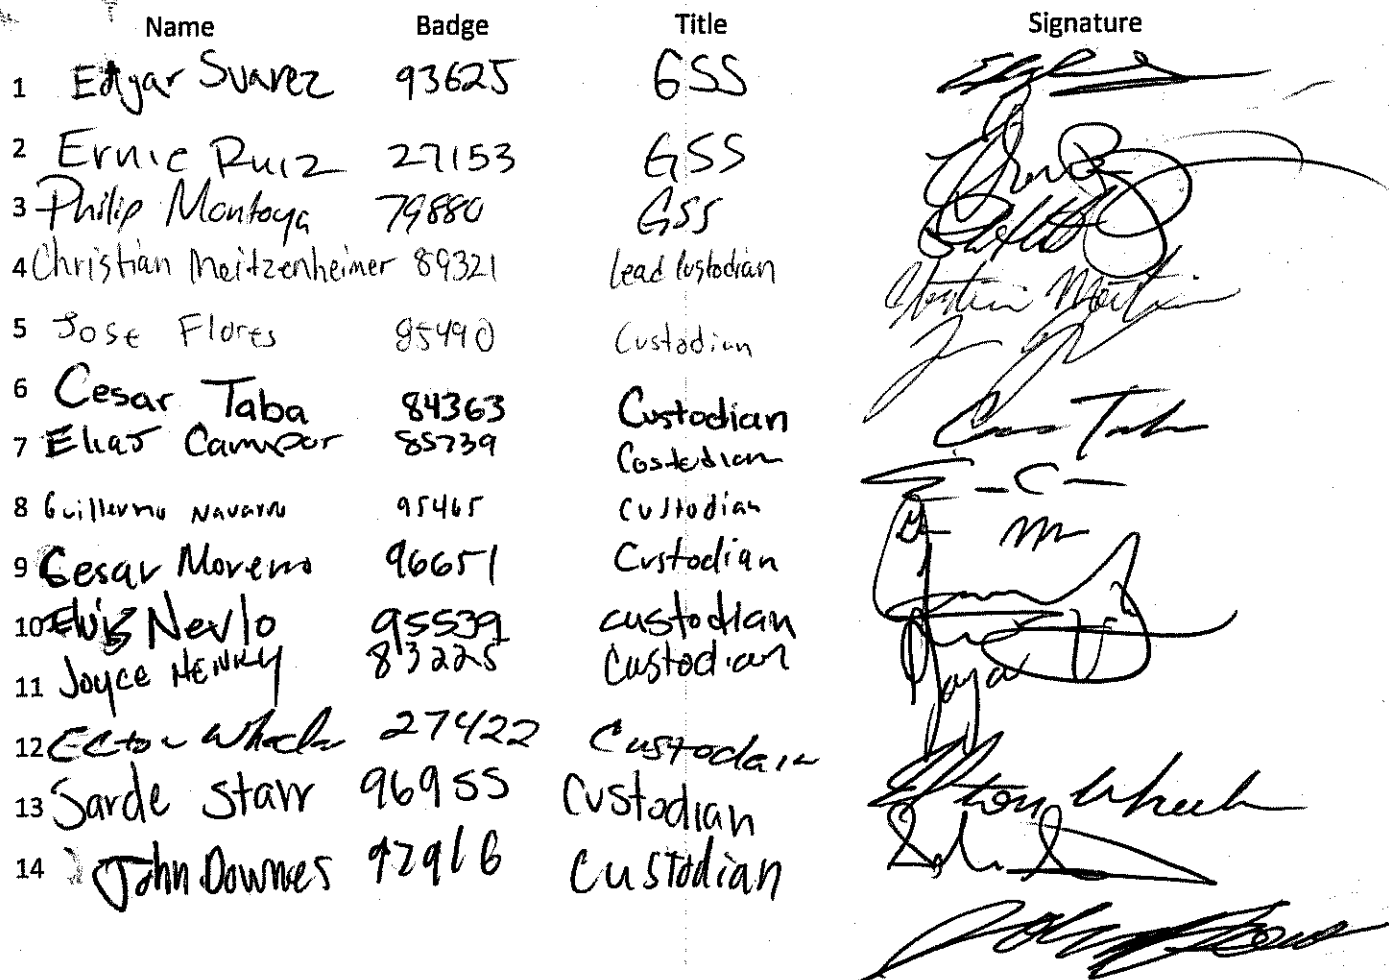 Name Badge Title Signature
1 Edgar Suarez 93625 GSS
2 Ernie Ruiz 27153 GSS
3 Philip Montoya 79880 GSS
4 Christian Meitzenheimer 89321 Lead Custodian
5 Jose Flores 85490 Custodian
6 Cesar Taba 84363 Custodian Cesar Taba
7 Elias Campos 85739 Costodian E-C-
8 Guillermo Navarro 95465 Custodian
9 Cesar Moreno 96651 Custodian
10 Nevlo 95539 custodian
11 Joyce HENRY 83225 Custodian Joyce
12 Ector Wheeler 27422 Custodain Wheeler
13 Sarde Starr 96955 Custodian
14 John Downes 92916 Custodian